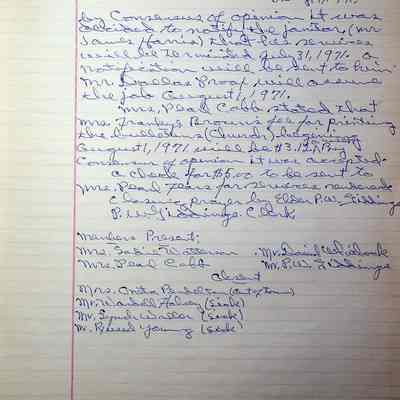 by Consensus of opinion it was
decided to notify the janitor, (Mr
James) that his services
will be terminated July 31, 1971. a
notification will be sent to him
Mr. Dallas Proof, will assume
the job August 1, 1971.
Mrs. Pearl Cobb stated that
Mrs. Brown's fee for printing
the bulletins (Church) beginning
August 1, 1971 will be $3.
Consensus of opinion it was accepted.
a check for $5.00 to be sent to
Mrs. Pearl for services rendered
Closing prayer by Elder P.W. Giddings
P.W. Giddings. Clerk
Members Present:
Mrs. Sabina Watterson . Mr. David
Mrs. Pearl Cobb Mr. P.W. Giddings
Absent
Mrs. Anita Pendleton (out of town)
Mr. Wardell (Sick)
Mr. (Sick)
Mr. Young (Sick)